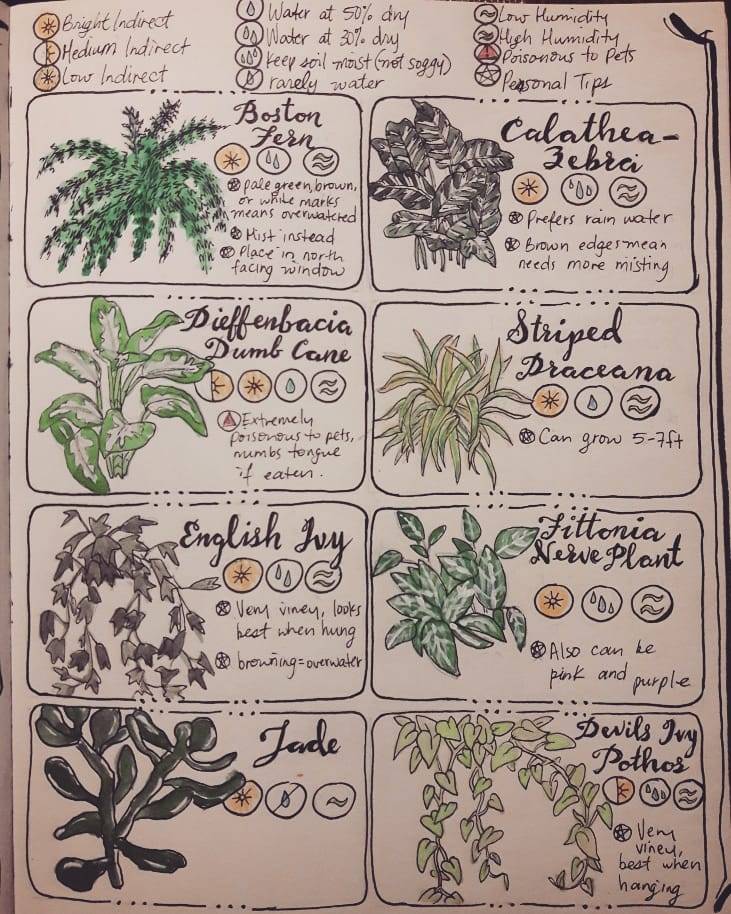 Bright Indirect
Medium Indirect
Low Indirect
Water at 50% dry
Water at 30% dry
Keep soil moist (not soggy)
rarely water
Low Humidity
High Humidity
Poisonous to Pets
Personal Tips
Boston
Fern
pale green, brown,
or white marks
means overwatered
Mist instead
Place in north
facing window
Calathea-
Zebra
Prefers rain water
Brown edges mean
needs more misting
Dieffenbacia
Dumb Cane
Extremely
poisonous to pets,
numbs tongue
if eaten.
Striped
Draceana
Can grow 5-7ft
English Ivy
Very viney, looks
best when hung
browning=overwater
Fittonia
Nerve Plant
Also can be
pink and purple
Jade
Devils Ivy
Pothos
Very
viney,
best when
hanging